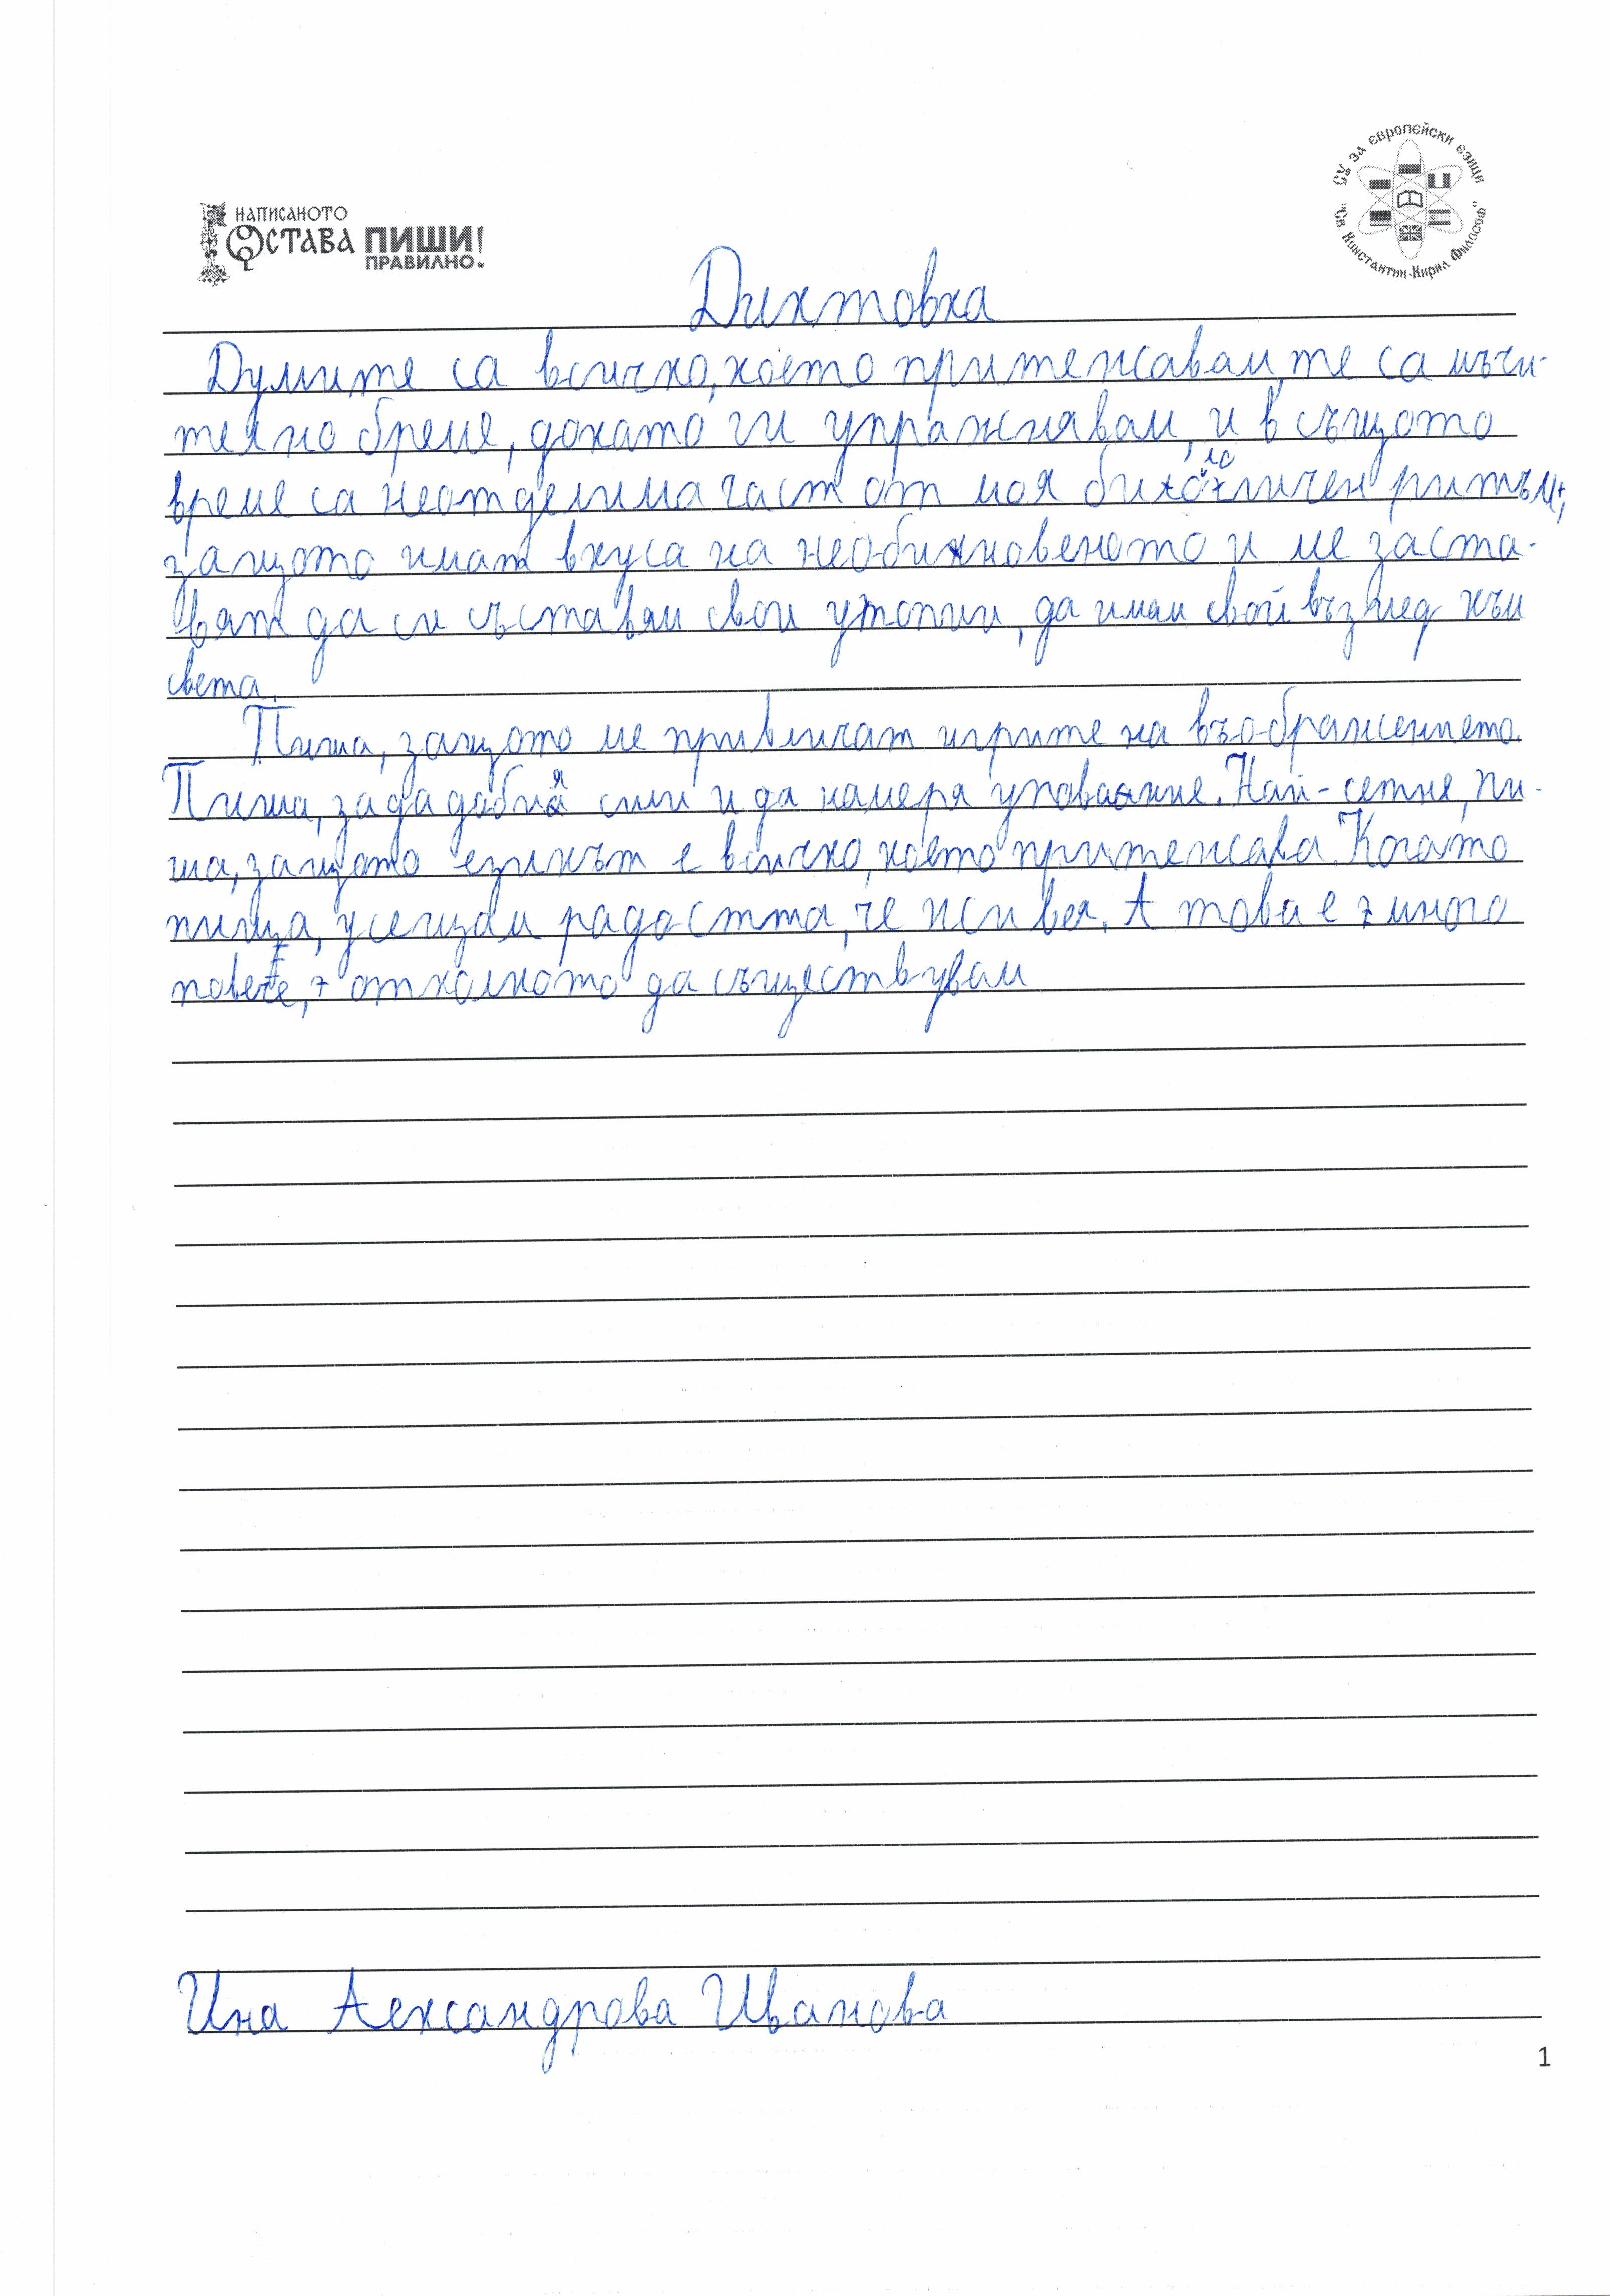 НАПИСАНОТО
ОСТАВА ПИШИ!
ПРАВИЛНО.
СУ за европейски езици
"Св Константин-Кирил Философ"
Диктовка
Думите са всичко, което притежавам, те са мъчи-
телно бреме, докато ги упражнявам, и в същото
време са неотделима част от моя ритъм,
защото имат вкуса на необикновеното и ме заста-
вят да си съставям свои утопии, да имам свой възглед към
света.
Пиша, защото ме привличат игрите на въображението.
Пиша, за да добия сили и да намеря упование. Най-сетне, пи-
ша, защото езикът е всичко, което притежава. Когато
пиша, усещам радостта, че живея. А това е много
повече, отколкото да съществувам
Ина Александрова Иванова
1